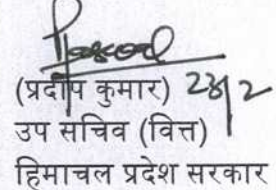 (प्रदीप कुमार) 23/2
उप सचिव (वित्त)
हिमाचल प्रदेश सरकार